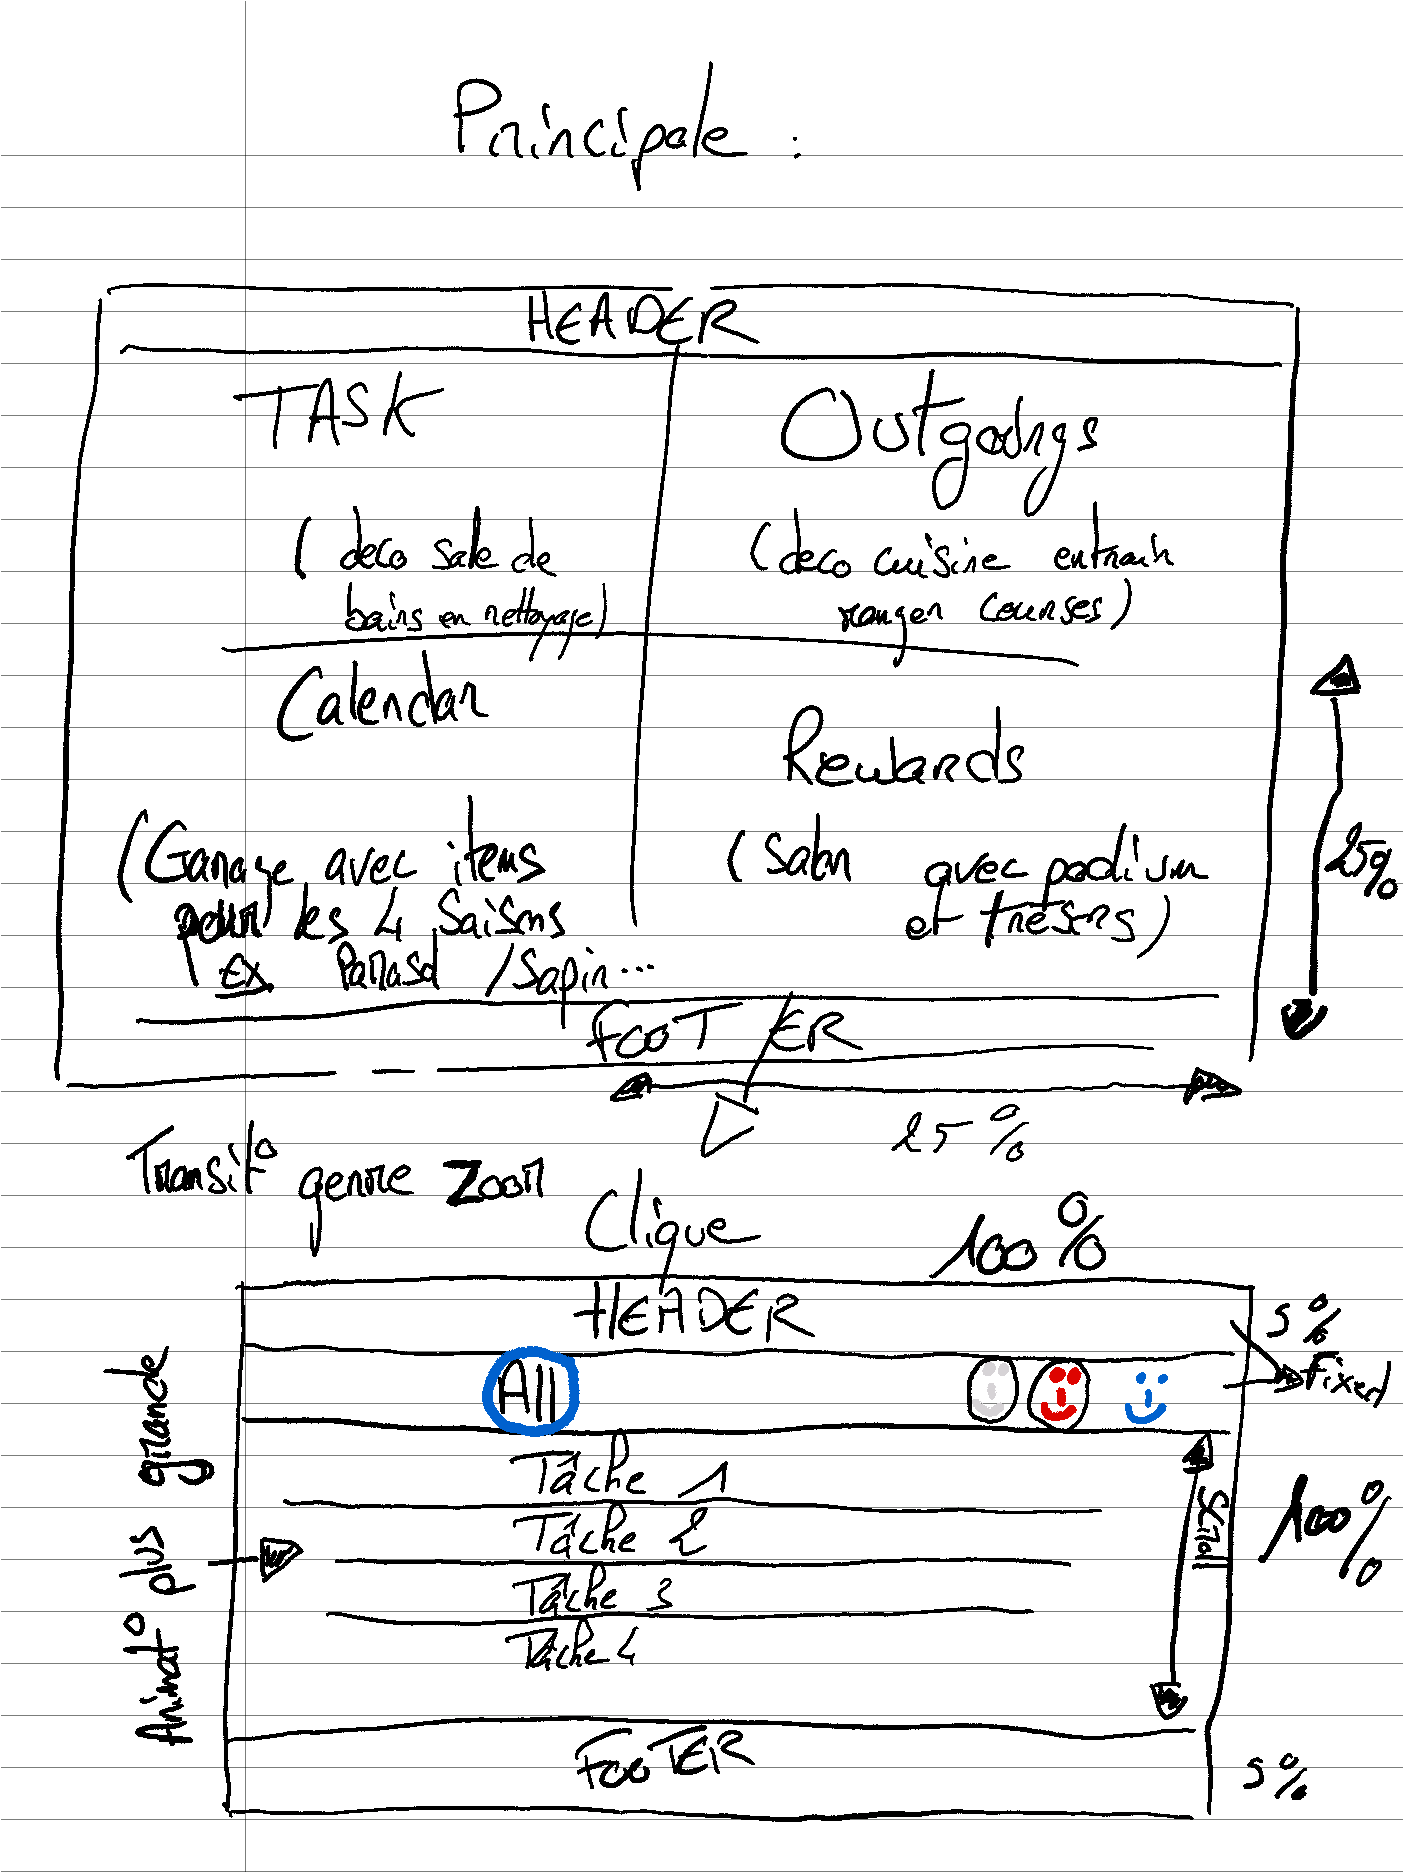 Principale :
HEADER
TASK
Outgoings
( deco salle de
bains en nettoyage)
( deco cuisine entrain
ranger courses)
Calendar
Rewards
(Garage avec items
pour les 4 saisons
Ex Parasol / Sapin...
( Salon avec podium
et trésors)
25%
FOOTER
25%
Transit° genre zoom
Clique
100%
HEADER
5%
Fixed
All
Tâche 1
Tâche 2
Tâche 3
Tâche 4
Scroll
100%
Animat° plus grande
FOOTER
5%